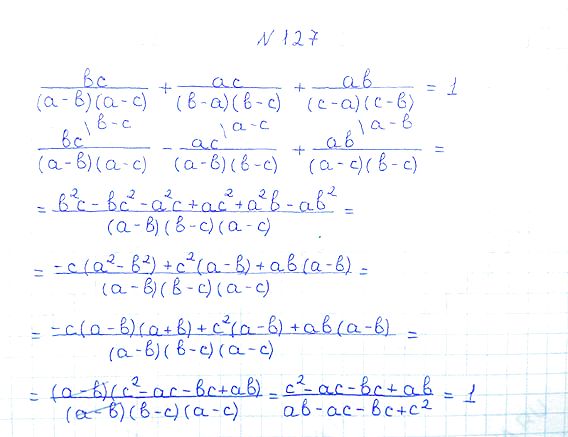 № 127
bc/((a-b)(a-c)) + ac/((b-a)(b-c)) + ab/((c-a)(c-b)) = 1
bc\b-c/((a-b)(a-c)) - ac\a-c/((a-b)(b-c)) + ab\a-b/((a-c)(b-c)) =
= (b²c-bc²-a²c+ac²+a²b-ab²)/((a-b)(b-c)(a-c)) =
= (-c(a²-b²)+c²(a-b)+ab(a-b))/((a-b)(b-c)(a-c)) =
= (-c(a-b)(a+b)+c²(a-b)+ab(a-b))/((a-b)(b-c)(a-c)) =
= ((a-b)(c²-ac-bc+ab))/((a-b)(b-c)(a-c)) = (c²-ac-bc+ab)/(ab-ac-bc+c²) = 1